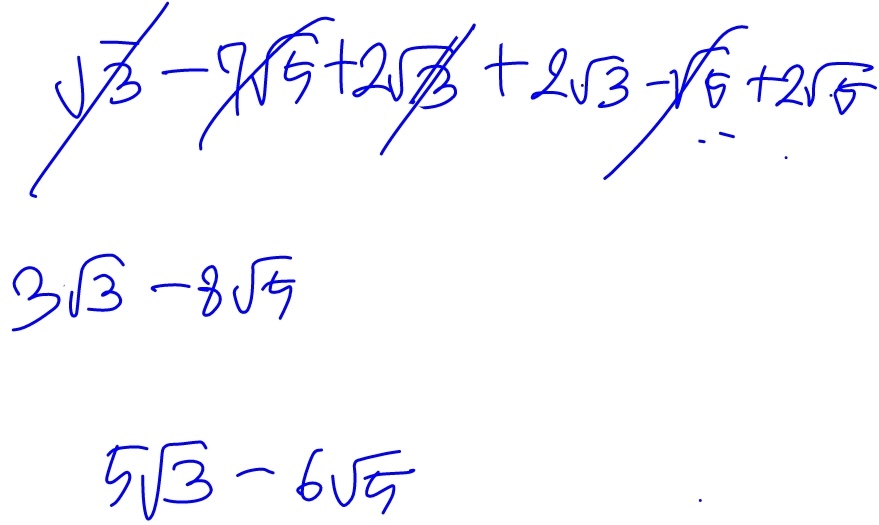 √3 - 7√5 + 2√3 + 2√3 - √5 + 2√5
3√3 - 8√5
5√3 - 6√5